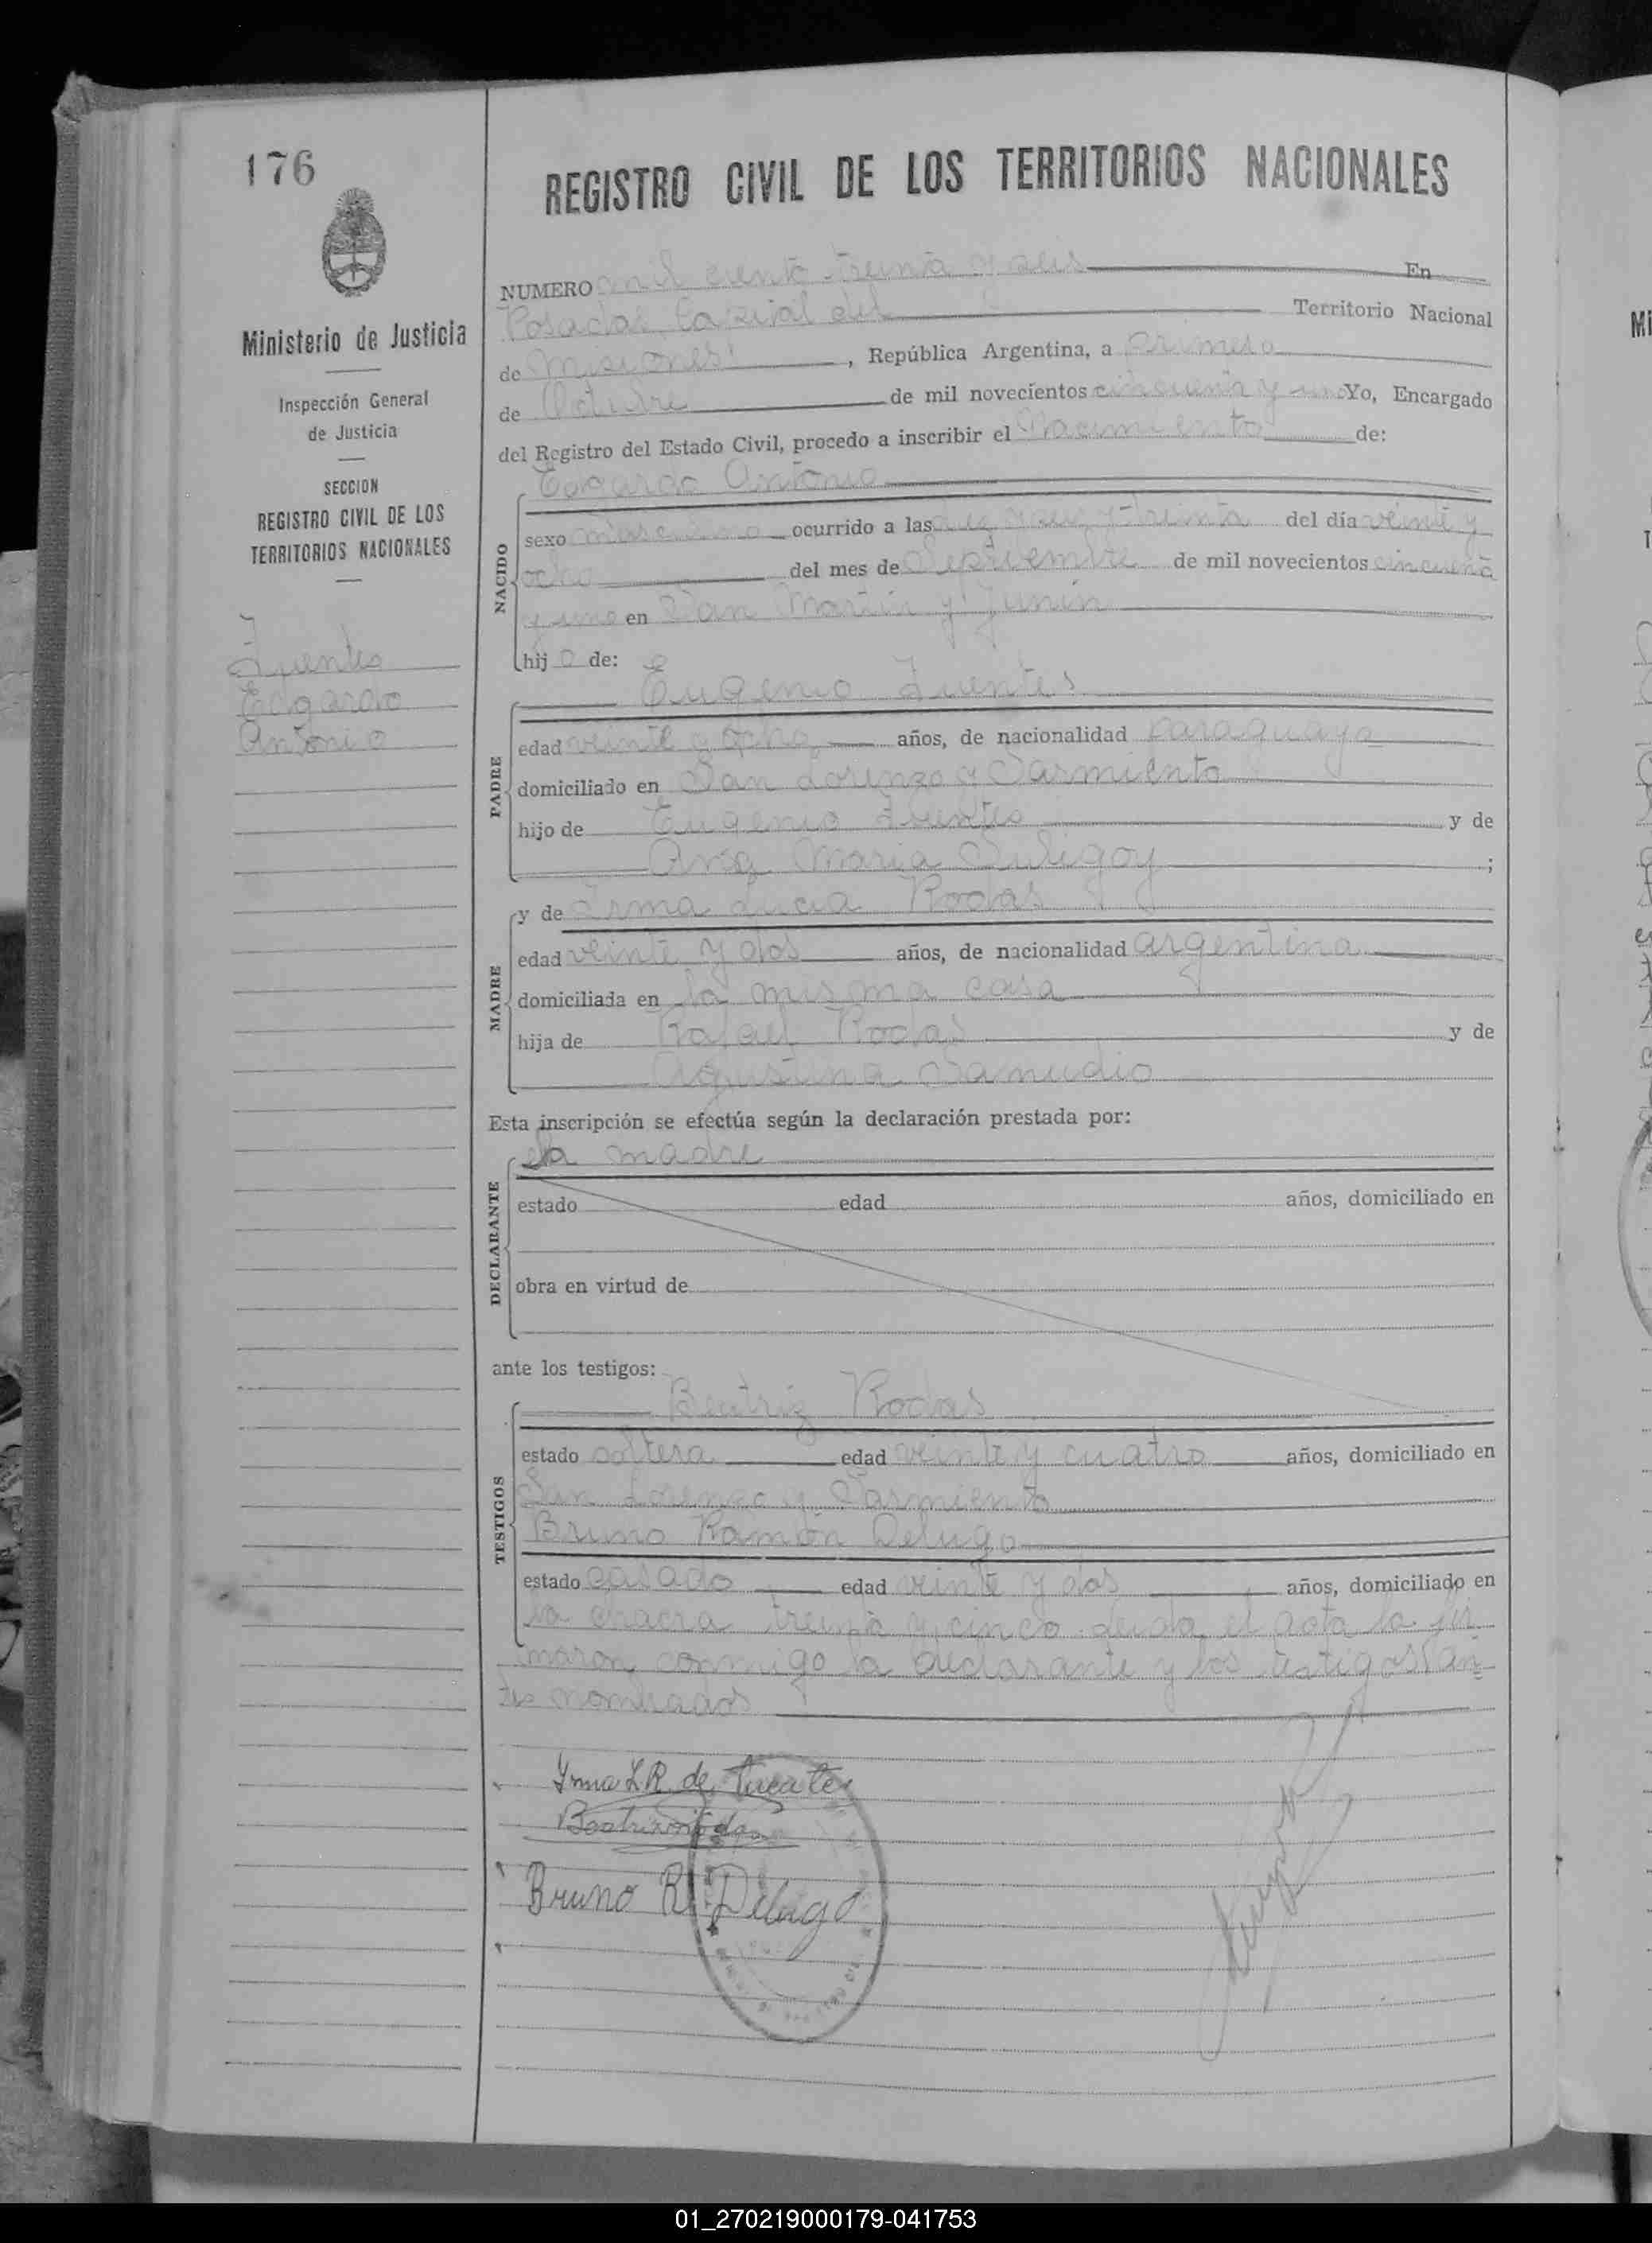 176
Ministerio de Justicia
Inspección General
de Justicia
SECCION
REGISTRO CIVIL DE LOS
TERRITORIOS NACIONALES
Fuentes
Edgardo
Antonio
REGISTRO CIVIL DE LOS TERRITORIOS NACIONALES
NUMERO mil ciento treinta y seis En
Posadas, Capital del Territorio Nacional
de Misiones, República Argentina, a primero
de Octubre de mil novecientos cincuenta y uno Yo, Encargado
del Registro del Estado Civil, procedo a inscribir el Nacimiento de:
Edgardo Antonio
NACIDO
sexo masculino ocurrido a las diez y seis y treinta del día veinte y
ocho del mes de Septiembre de mil novecientos cincuenta
y uno en San Martín y Junín
hijo de:
Eugenio Fuentes
PADRE
edad veinte y ocho años, de nacionalidad paraguaya
domiciliado en San Lorenzo y Sarmiento
hijo de Eugenio Fuentes y de
Ana Maria ;
y de Irma Lucia Rodas
MADRE
edad veinte y dos años, de nacionalidad argentina
domiciliada en la misma casa
hija de Rafael Rodas y de
Agustina Samudio
Esta inscripción se efectúa según la declaración prestada por:
la madre
DECLARANTE
estado edad años, domiciliado en
obra en virtud de
ante los testigos:
Beatriz Rodas
TESTIGOS
estado soltera edad veinte y cuatro años, domiciliado en
San Lorenzo y Sarmiento
Bruno Ramón Delugo
estado casado edad veinte y dos años, domiciliado en
la chacra treinta y cinco leida el acta la fir
maron conmigo la declarante y los testigos an
tes nombrados
Irma L R. de Fuentes
Beatriz Rodas
Bruno R. Delugo
01_270219000179-041753